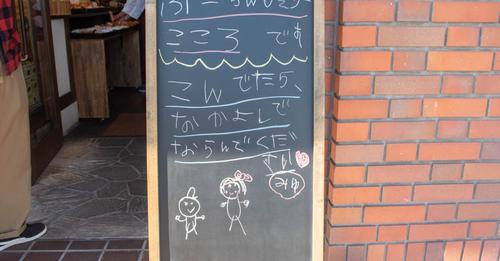 こころ です
こんでたら、
なかよしで
ならんでくだ
さい
みゆ